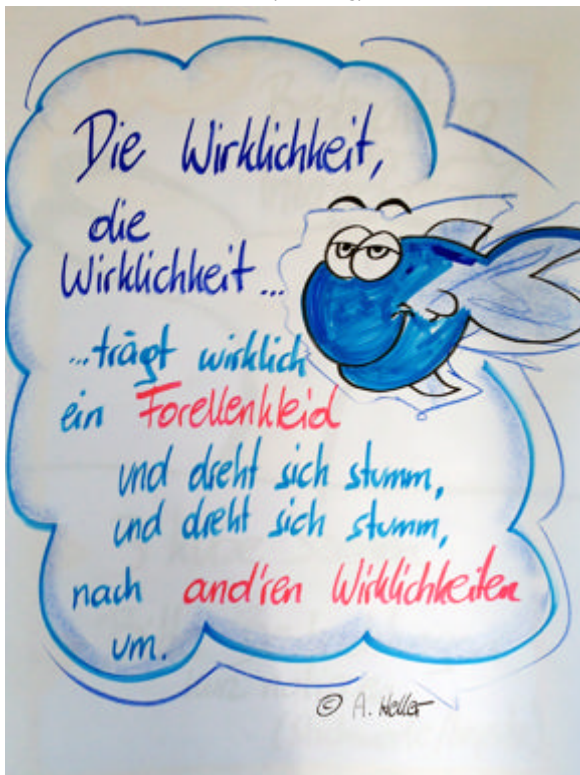 Die Wirklichkeit,
die
Wirklichkeit...
...trägt wirklich
ein Forellenkleid
und dreht sich stumm,
und dreht sich stumm,
nach and'ren Wirklichkeiten
um.
© A. Heller